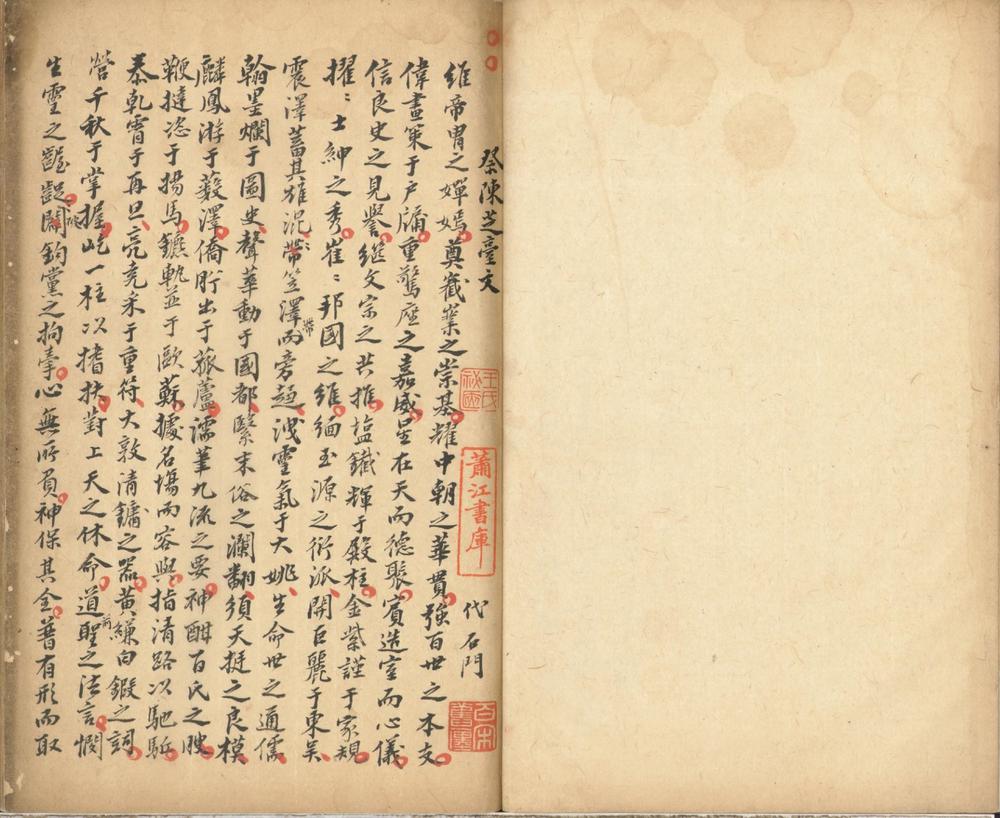 祭陳芝臺文
代石門
維帝胄之嬋嫣奠巀嶪之崇基耀中朝之華貫強百世之本支
偉畫策于戶牖重驚座之嘉威星在天而德聚賓造室而心儀
信良史之見譽繼文宗之共推塩鐵輝于殿柱金紫謹于家規
擢〻士紳之秀崔〻邦國之維緬玉源之衍派開巨麗于東吳
震澤蓄其雄混帶笠澤而旁趨洩靈氣于大姚生命世之通儒
翰墨爛于圖史聲華動于國都繄末俗之瀾翻須天挺之良模
麟鳳游于藪澤僑肸出于菰蘆濡筆九流之要神酣百氏之腴
鞭撻恣于揚馬鑣軌並于歐蘇據名塲而容與指清路以馳驅
泰乾霄于再旦亮堯采于重符大敦清鏞之器黃縑白鍛之詞
營千秋于掌握屹一柱以搘扶對上天之休命道聖之法言憫
生靈之齷齪闢鈎黨之拘牽心無所負神保其全普有形而取
王氏祕函
蕭江書庫